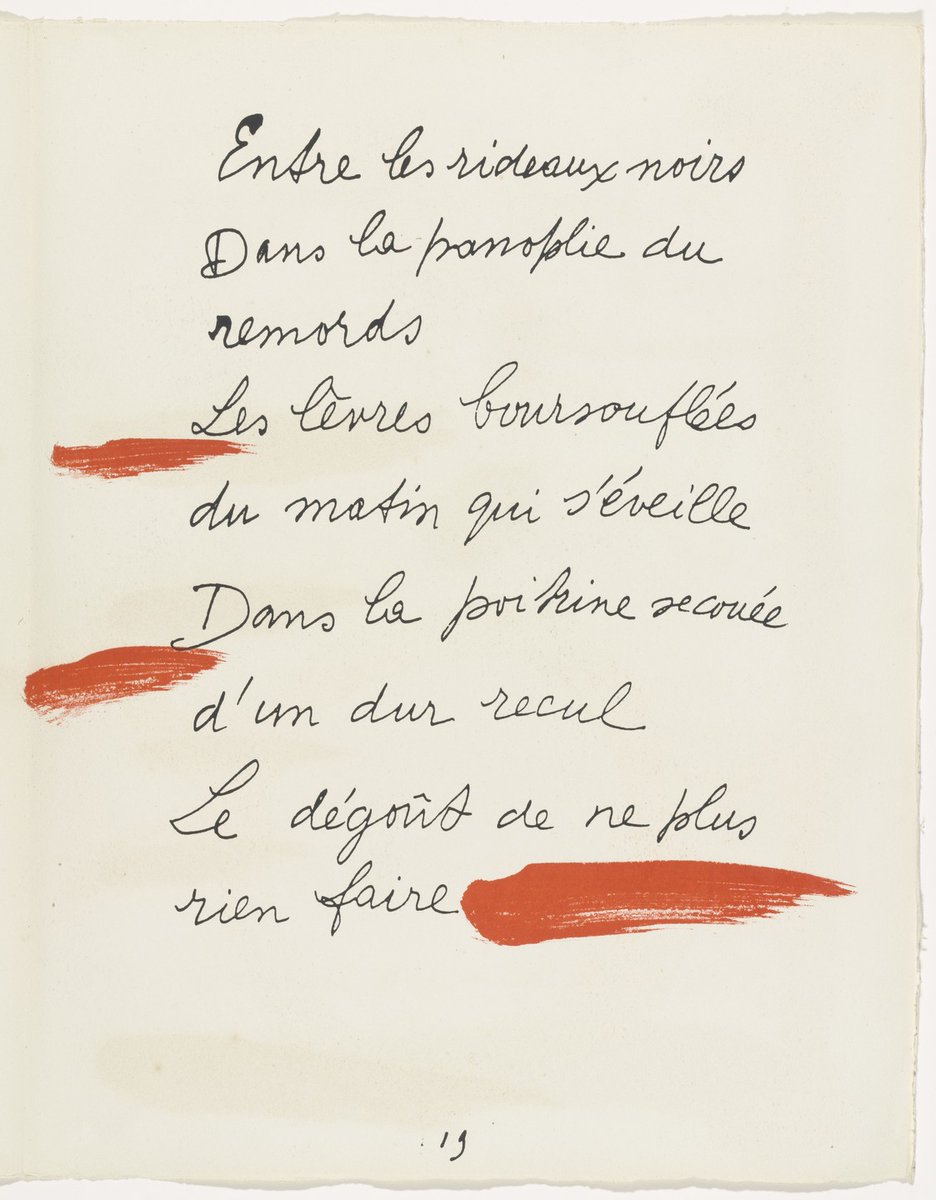 Entre les rideaux noirs
Dans la panoplie du
remords
Les lèvres boursouflées
du matin qui s'éveille
Dans la poitrine secouée
d'un dur recul
Le dégoût de ne plus
rien faire
19